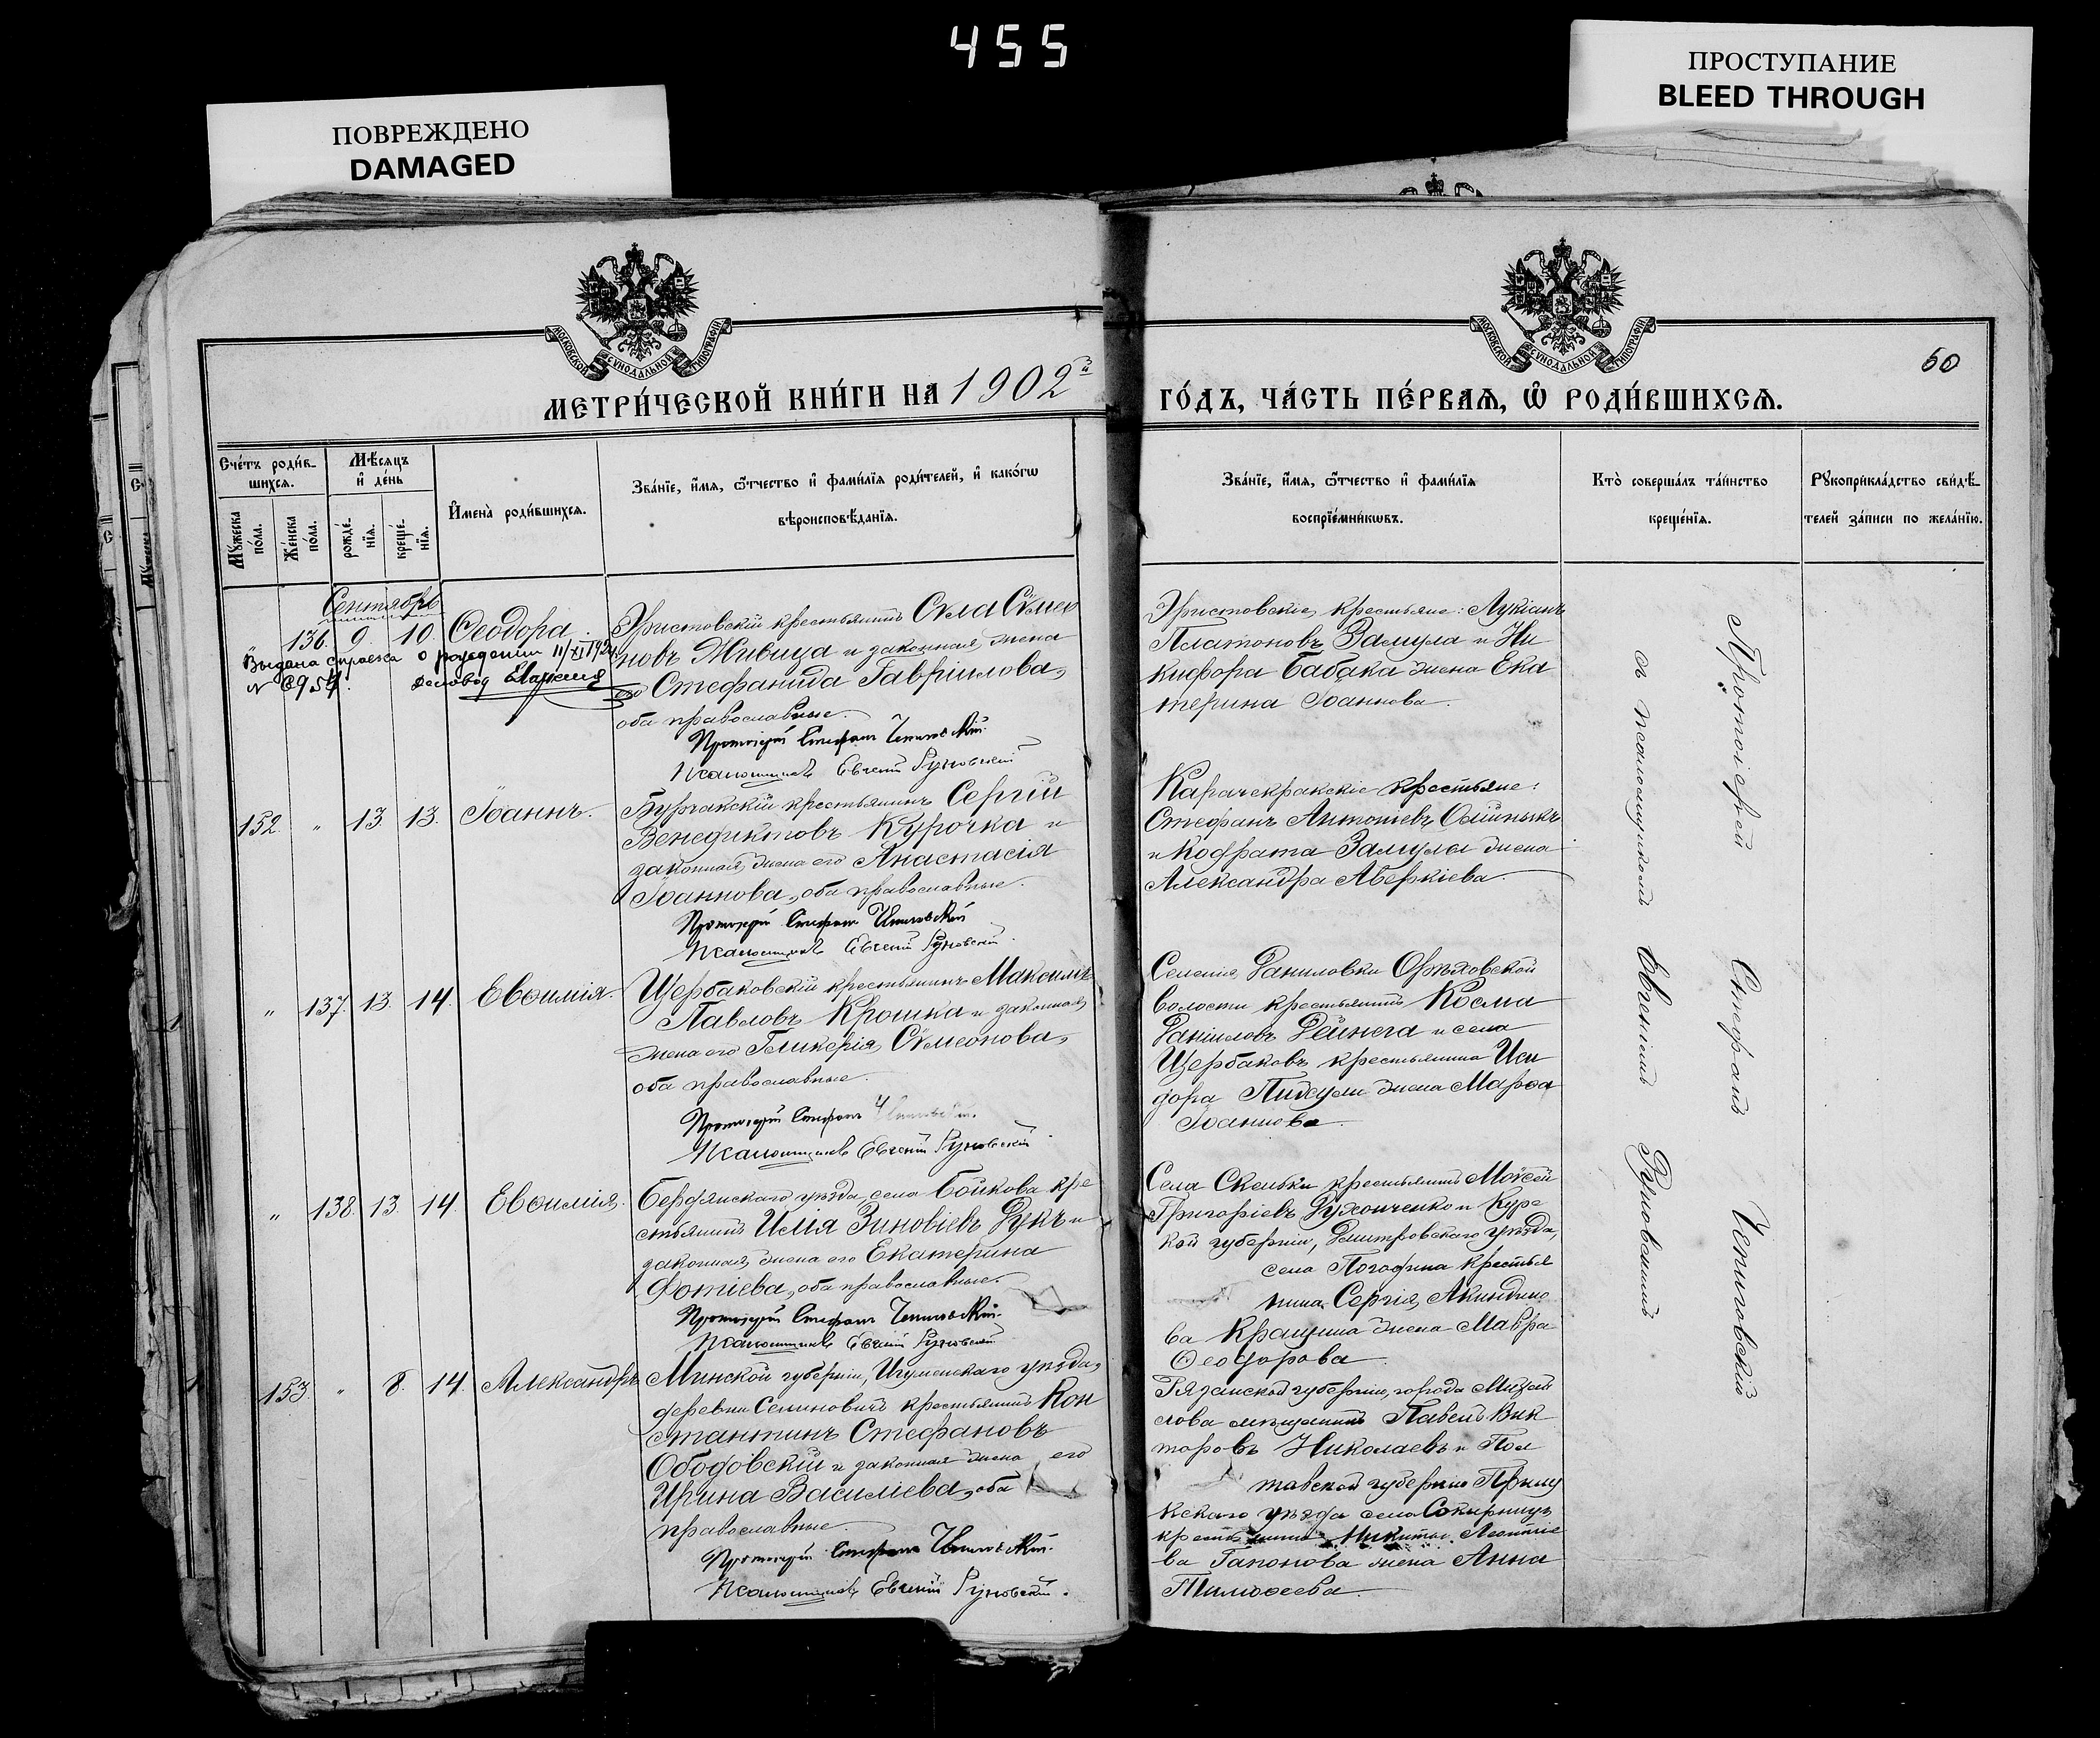 455
ПОВРЕЖДЕНО
DAMAGED
ПРОСТУПАНИЕ
BLEED THROUGH
МОСКОВСКОЙ СѴНОДАЛЬНОЙ ТИПОГРАФІИ
МОСКОВСКОЙ СѴНОДАЛЬНОЙ ТИПОГРАФІИ
50
МЕТРИ́ЧЕСКОЙ КНИ́ГИ НА 1902й
ГО́ДЪ, ЧА́СТЬ ПЕ́РВАѦ, Ѡ҆ РОДИ́ВШИХСѦ.
Сче́тъ роди́в-
шихсѧ.
Мѣ́сѧцъ
и҆ де́нь
Мꙋ́жеска
по́ла.
Же́нска
по́ла.
рожде́-
нїѧ.
креще́-
нїѧ.
И҆мена̀ роди́вшихсѧ.
Зва́нїе, и҆́мѧ, ѻ҆́тчество и҆ фами́лїѧ роди́телей, и҆ како́гѡ
вѣроисповѣ́данїѧ.
Зва́нїе, и҆́мѧ, ѻ҆́тчество и҆ фами́лїѧ
воспрїе́мникѡвъ.
Кто̀ соверша́лъ та́инство
креще́нїѧ.
Рꙋкоприкла́дство свидѣ́-
телей за́писи по жела́нїю.
Сентябрь
„ 136. 9. 10. Ѳеодора
Выдана справка о рождении 11/XI 192
N 6954. Деловод
Христовскій крестьянинъ Сѵла Сѵмео
новъ Живица и законная жена
его Стефанида Гавріилова,
оба православные.
Протоіерей Стефанъ Чепиговскій.
Псаломщикъ Евгеній Руновскій
Христовскіе крестьяне: Лукіанъ
Платоновъ Замула и Ни
кифора Бабака жена Ека
терина Іоаннова.
152. „ 13. 13. Іоаннъ.
Бурчакскій крестьянинъ Сергій
Венедиктовъ Курочка и
законная жена его Анастасія
Іоаннова, оба православные.
Протоіерей Стефанъ Чепиговскій
Псаломщикъ Евгеній Руновскій.
Карачекракскіе крестьяне:
Стефанъ Антоніевъ Олійныкъ
и Кодрата Замулы жена
Александра Аверкіева.
„ 137. 13. 14. Евѳимія.
Щербаковскій крестьянинъ Максимъ
Павловъ Крошка и законная
жена его Гликерія Сѵмеонова,
оба православные.
Протоіерей Стефанъ Чепиговскій.
Псаломщикъ Евгеній Руновскій
Селенія Даниловки Орѣховской
волости крестьянинъ Косма
Даніиловъ Дейнега и села
Щербаковъ крестьянина Иси
дора Пидсули жена Марѳа
Іоаннова.
„ 138. 13. 14. Евѳимія.
Бердянскаго уѣзда, села Бойкова кре
стьянинъ Илія Зиновіевъ Дукъ и
законная жена его Екатерина
Фотіева, оба православные.
Протоіерей Стефанъ Чепиговскій.
Псаломщикъ Евгеній Руновскій
Села Скельки крестьянинъ Моѵсей
Григоріевъ Духонченко и Курс
кой губерніи, Дмитровскаго уѣзда,
села Погодина крестья
нина Сергія Акиндино
ва Кращина жена Мавра
Ѳеодорова.
153. „ 8. 14. Александръ
Минской губерніи, Игуменскаго уѣзда,
деревни Селиновичъ крестьянинъ Кон
стантинъ Стефановъ
Ободовскій и законная жена его
Ирина Василіева, оба
православные.
Протоіерей Стефанъ Чепиговскій.
Псаломщикъ Евгеній Руновскій.
Рязанской губерніи, города Михай
лова мѣщанинъ Павелъ Вик
торовъ Николаевъ и Пол
тавской губерніи Прилу
кскаго уѣзда села Сокиринцъ
крестьянина Никиты Леонтіе
ва Гапонова жена Анна
Тимоѳеева.
Протоіерей Стефанъ Чепиговскій
съ псаломщикомъ Евгеніемъ Руновскимъ